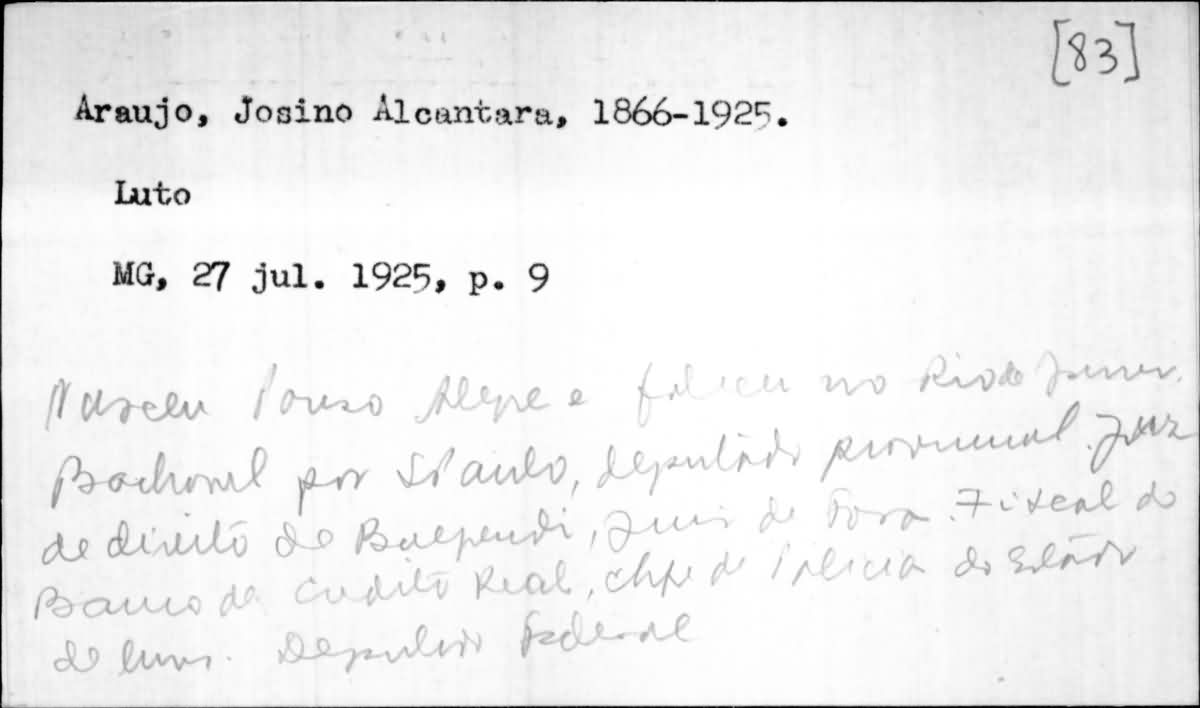 [83]
Araujo, Josino Alcantara, 1866-1925.
Luto
MG, 27 jul. 1925, p. 9
Nasceu Pouso Alegre e faleceu no Rio de Janeiro.
Bacharel por S Paulo, deputado provincial. Juiz
de direito de Baependi, Juiz de Fora. Fiscal do
Banco de Credito Real, chefe de Policia do Estado
de Minas. Deputado Federal